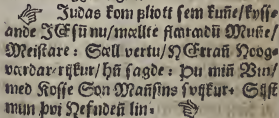 Judas kom pliott sem kunne/kysse
ande JEsū nu/mællte flaaradū Muñe/
Meistare: Sæll vertu/HErran Hoog-
værdar-rijkur/hñ sagde: Þu miñ Vin/
med Kosse Son Mañsins svijkur: Sijst
mun þvi Hefnden lin.